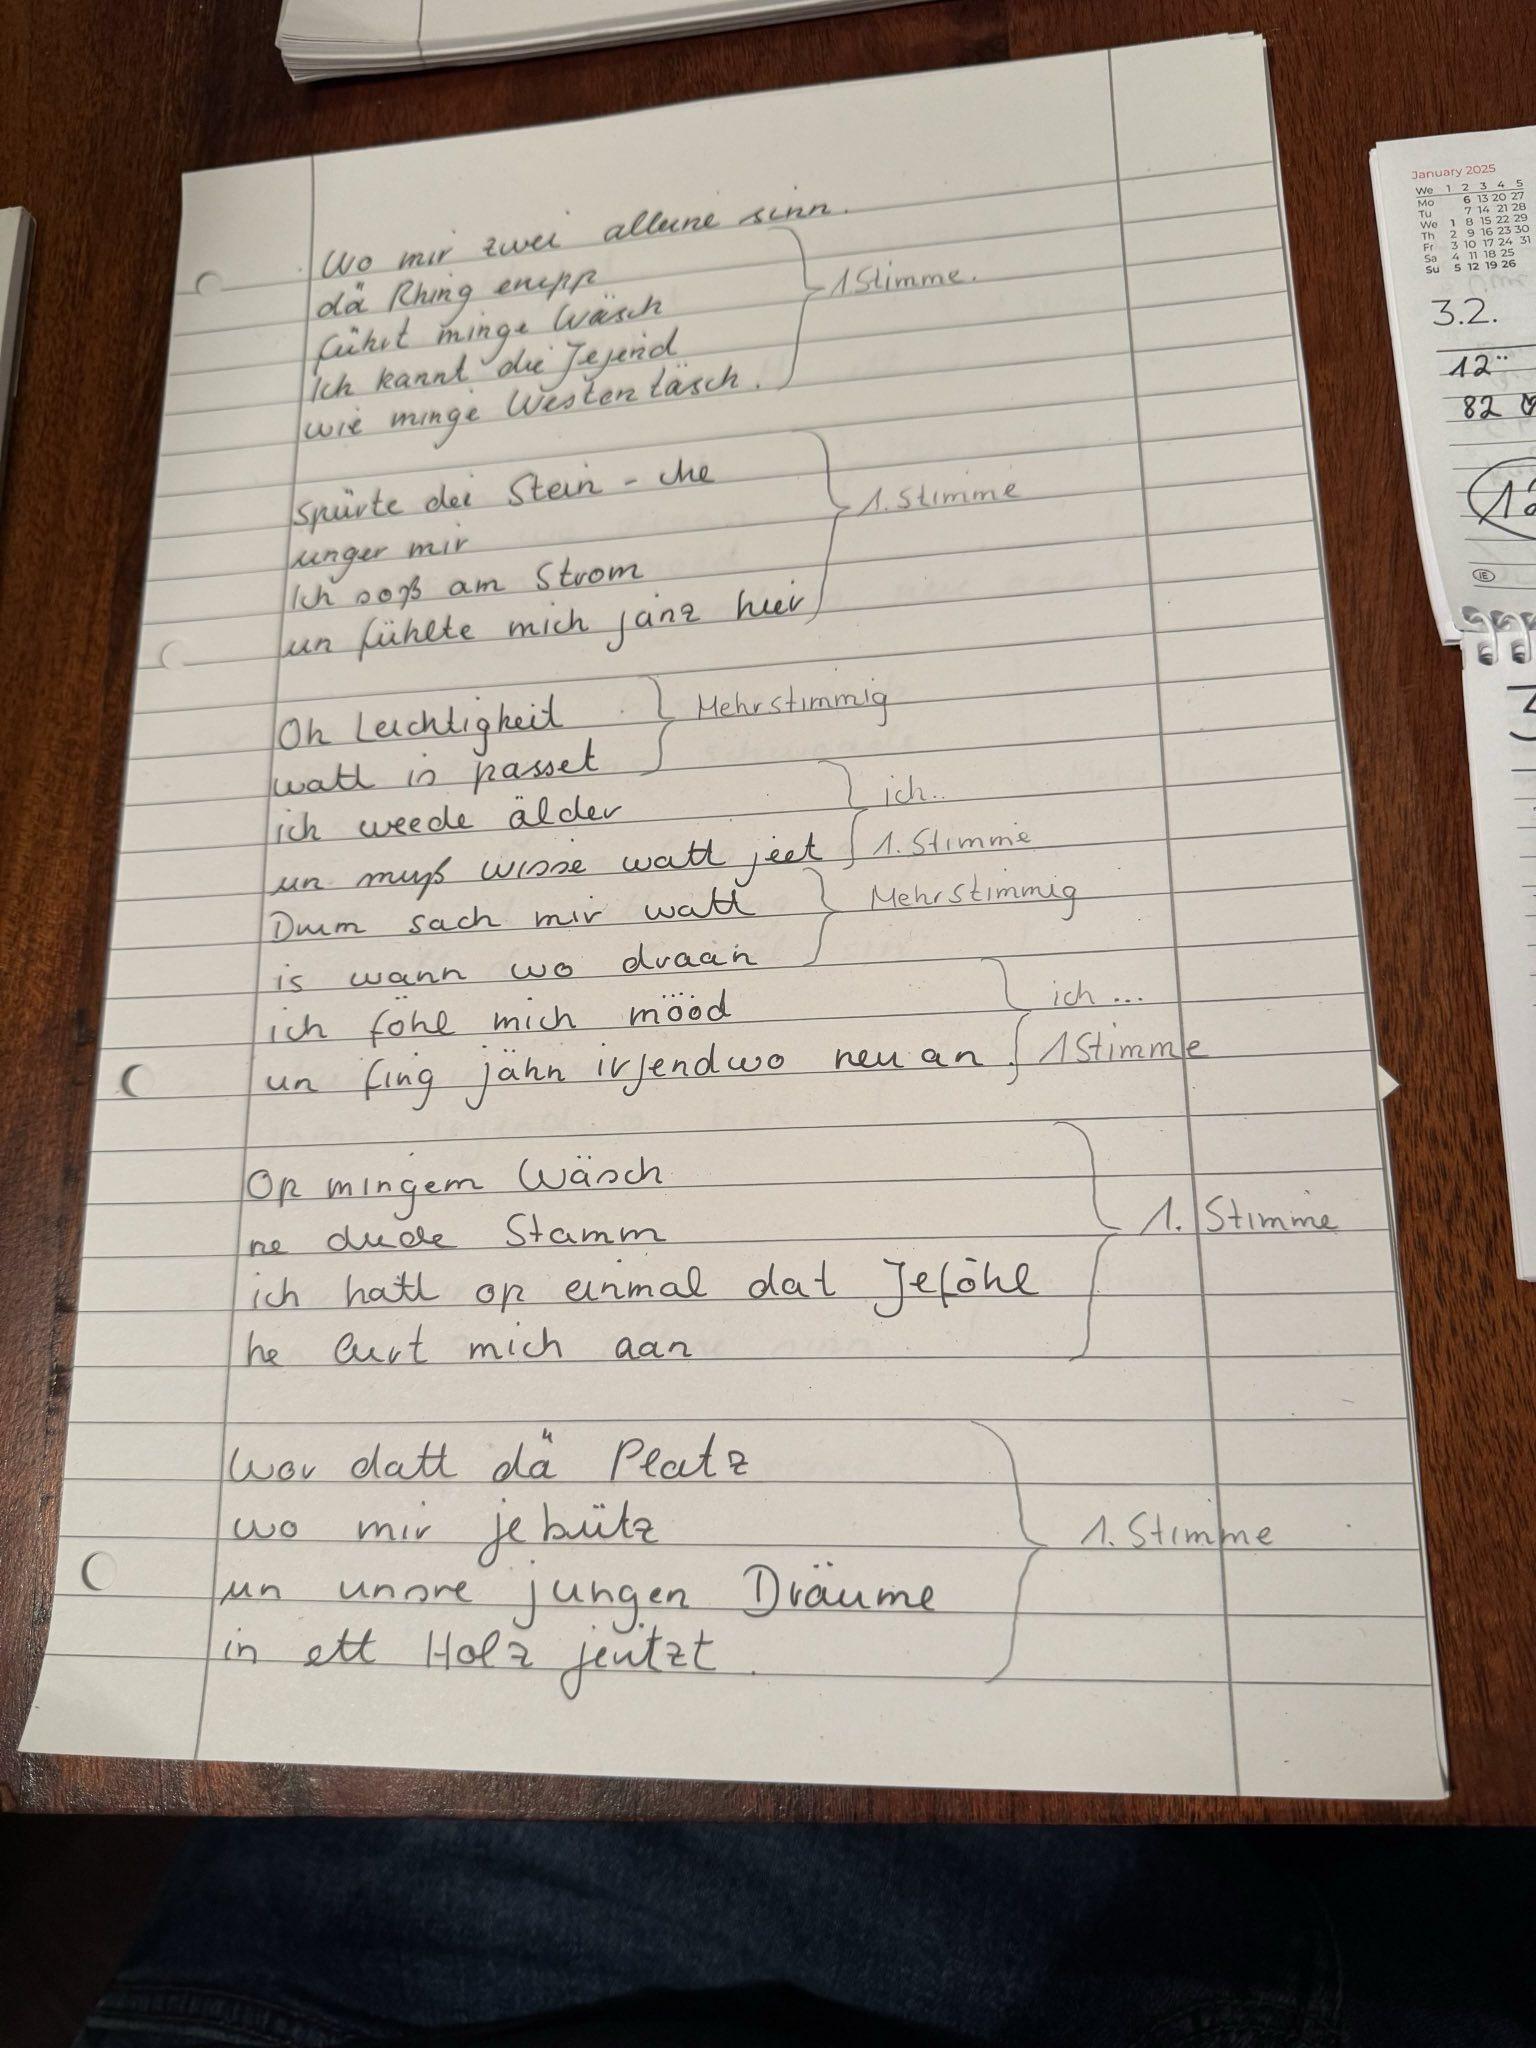 Wo mir zwei alleine sinn.
dä Rhing erupp
führt minge Wäsch
Ich kannt die Jejend
wie minge Westentäsch.
1 Stimme.
Spürte dei Stein - che
unger mir
Ich soß am Strom
un fühlte mich janz hier
1. Stimme
Oh Leichtigkeit
watt is passet
Mehrstimmig
ich weede älder
un muß wisse watt jeet
ich..
1. Stimme
Dum sach mir watt
is wann wo draan
Mehrstimmig
ich föhl mich mööd
un fing jähn irjendwo neu an.
ich ...
1 Stimme
Op mingem Wäsch
ne dude Stamm
ich hatt op einmal dat Jeföhl
he lurt mich aan
1. Stimme
Wor datt dä Platz
wo mir jebütz
un unsre jungen Dräume
in ett Holz jeritzt.
1. Stimme
January 2025
We 1 2 3 4 5
Mo 6 13 20 27
Tu 7 14 21 28
We 1 8 15 22 29
Th 2 9 16 23 30
Fr 3 10 17 24 31
Sa 4 11 18 25
Su 5 12 19 26
3.2.
12
82